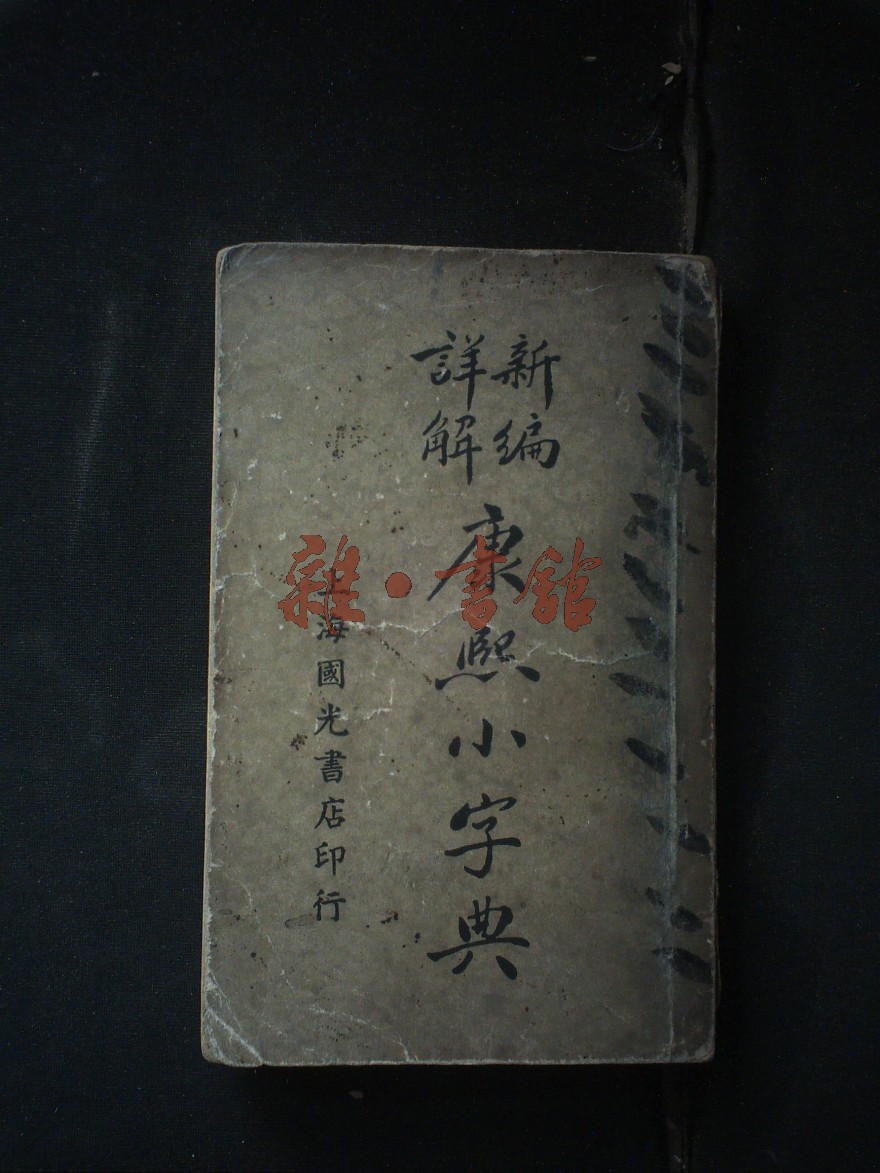 新編
詳解
康熙小字典
上海國光書店印行
雜·書館